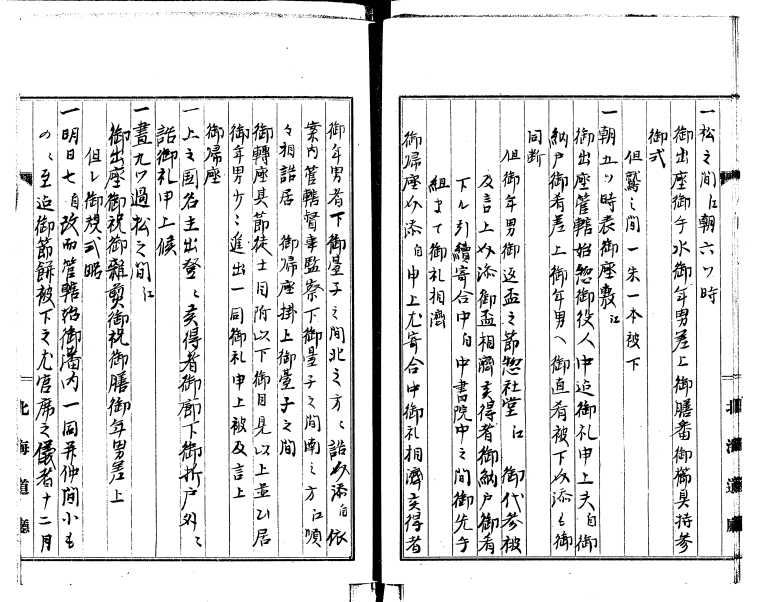 一松之間江朝六ツ時
御出座御手水御年男差上御膳番御櫛具持参
御式
但鷲之間一朱一本被下
一朝五ツ時表御座敷江
御出座管轄始惣御役人中迄御礼申上夫自御
納戸御肴差上御年男へ御直肴被下以添も御
同断
但御年男御返盃之節惣社堂江御代参被
及言上以添御盃相濟候得者御納戸御肴
下ル引續寄合中自中書院中之間御先手
組まて御礼相濟
御帰座以添自申上尤寄合中御礼相濟候得者
御年男者下御臺子之間北之方々詰以添自依
案内管轄督事監察下御臺子之間南之方江順
々相詰居 御帰座掛上御臺子之間
御轉座其節徒士目附以下御目見以上並ひ居
御年男少々進出一同御礼申上被及言上
御帰座
一上之国名主出登候得者御廊下御折戸外
詰御礼申上候
一晝九ツ過松之間江
御出座御祝御雑煎御祝御膳御年男差上
但し御規式略
一明日七ツ自改而管轄始御番内一同并仲間小も
のゝ至迄御節餅被下之尤官席之儀者十二月
北海道廳
北海道廳